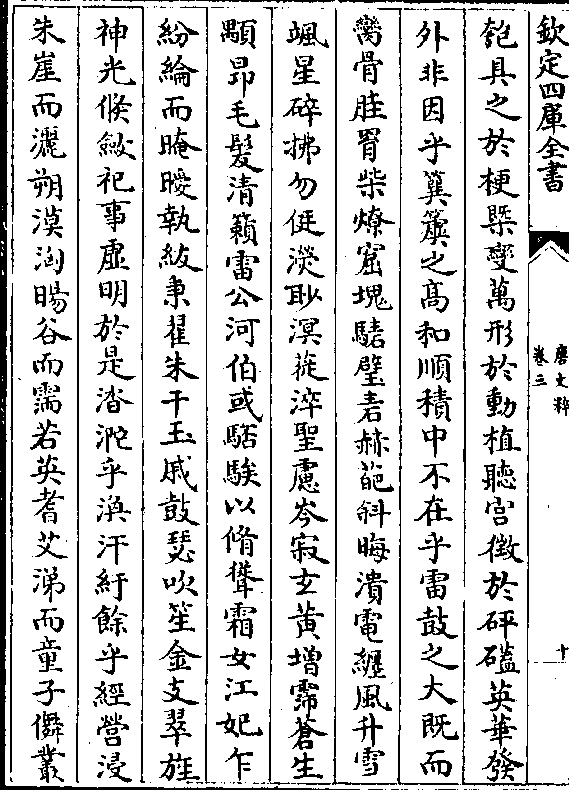 欽定四庫全書
唐文粹
卷三
十
匏具之於梗槩變萬形於動植聽宮徵於砰磕英華發
外非因乎簨簴之高和順積中不在乎雷鼓之大既而
骨胜罥柴燎窟塊騞擘砉赫葩斜晦潰電纏風升雪
颯星碎拂勿侹濙眇溟蓯淬聖慮岑寂玄黃增霈蒼生
顒昂毛髮清籟雷公河伯或駓騃以脩聳霜女江妃乍
紛綸而晻曖執紱秉翟朱干玉戚鼓瑟吹笙金支翠旌
神光倏斂祀事虛明於是涾沱乎渙汗紆餘乎經營浸
朱崖而灑朔漠洶暘谷而濡若英耆艾涕而童子儛叢